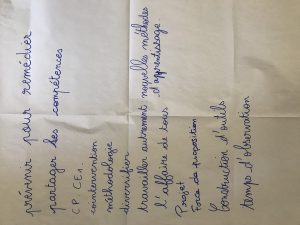 prévenir pour remédier
partager les compétences
CP. CE1.
cointervention
méthodologie
diversifier
travailler autrement nouvelles méthodes
d'apprentissage
l'affaire de tous
Projet
Force de proposition
Construction d'outils
temps d'observation